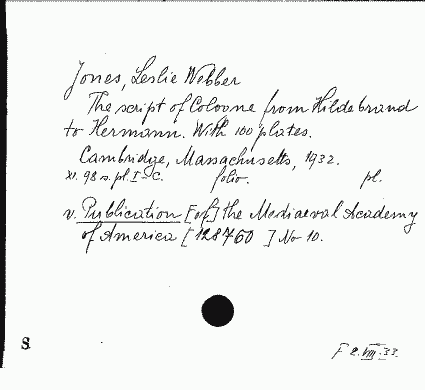 Jones, Leslie Webber
The script of Cologne from Hildebrand
to Hermann. With 100 plates.
Cambridge, Massachusetts, 1932.
XI. 98 s. pl I-C. folio. pl.
v. Publication [of] the Mediaeval Academy
of America [128760] No 10.
S
F 2.VIII.33.